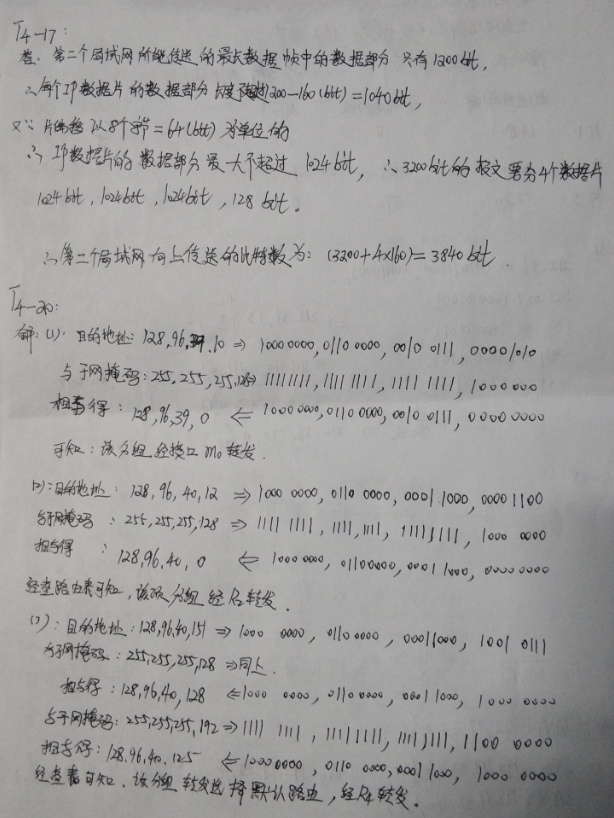 T4-17:
答: 第二个局域网所能传送的最长数据帧中的数据部分只有1200bit,
∴每个IP数据片的数据部分1200-160(bit)=1040bit,
又∵片偏移以8个字节=64(bit)为单位的
∴IP数据片的数据部分最大不超过1024bit, ∴3200bit的报文要分4个数据片
1024bit, 1024bit, 1024bit, 128bit。
∴第二个局域网向上传送的比特数为: (3200+4x160)=3840bit
T4-20:
解:(1): 目的地址: 128,96,39,10 ⇒ 1000 0000, 0110 0000, 0010 0111, 0000 1010
与子网掩码: 255,255,255,128⇒ 1111 1111, 1111 1111, 1111 1111, 1000000
相与得: 128,96,39,0 ⇐ 1000 0000, 0110 0000, 0010 0111, 0000 0000
可知: 该分组经接口m0转发.
(2): 目的地址: 128,96,40,12 ⇒ 1000 0000, 0110 0000, 0001 1000, 0000 1100
与子网掩码: 255,255,255,128 ⇒ 1111 1111, 1111,1111, 1111 1111, 1000 0000
相与得: 128,96,40,0 ⇐ 1000 0000, 01100000, 0001 1000, 0000 0000
经查路由表可知, 该分组经R2转发.
(3): 目的地址: 128,96,40,151 ⇒ 1000 0000, 0110 0000, 0001 1000, 1001 0111
与子网掩码: 255,255,255,128 ⇒同上.
相与得: 128,96,40,128 ⇐1000 0000, 0110 0000, 0001 1000, 1000 0000
与子网掩码: 255,255,255,192 ⇒1111 1111, 1111 1111, 1111 1111, 1100 0000
相与得: 128,96,40,125 ⇐1000 0000, 0110 0000, 0001 1000, 1000 0000
经查表可知, 该分组转发选择默认路由, 经R4转发.